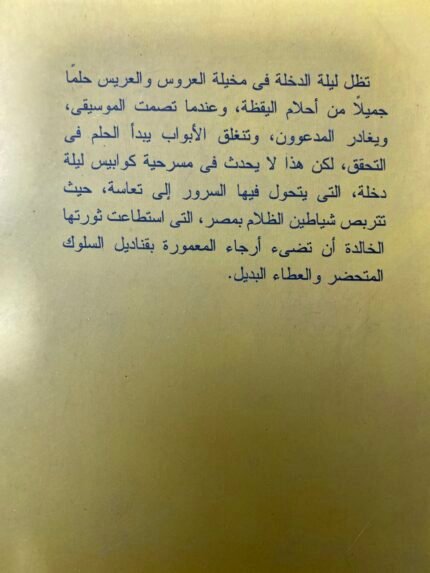 تظل ليلة الدخلة فى مخيلة العروس والعريس حلمًا
جميلاً من أحلام اليقظة، وعندما تصمت الموسيقى،
ويغادر المدعوون، وتنغلق الأبواب يبدأ الحلم فى
التحقق، لكن هذا لا يحدث فى مسرحية كوابيس ليلة
دخلة، التى يتحول فيها السرور إلى تعاسة، حيث
تتربص شياطين الظلام بمصر، التى استطاعت ثورتها
الخالدة أن تضىء أرجاء المعمورة بقناديل السلوك
المتحضر والعطاء البديل.